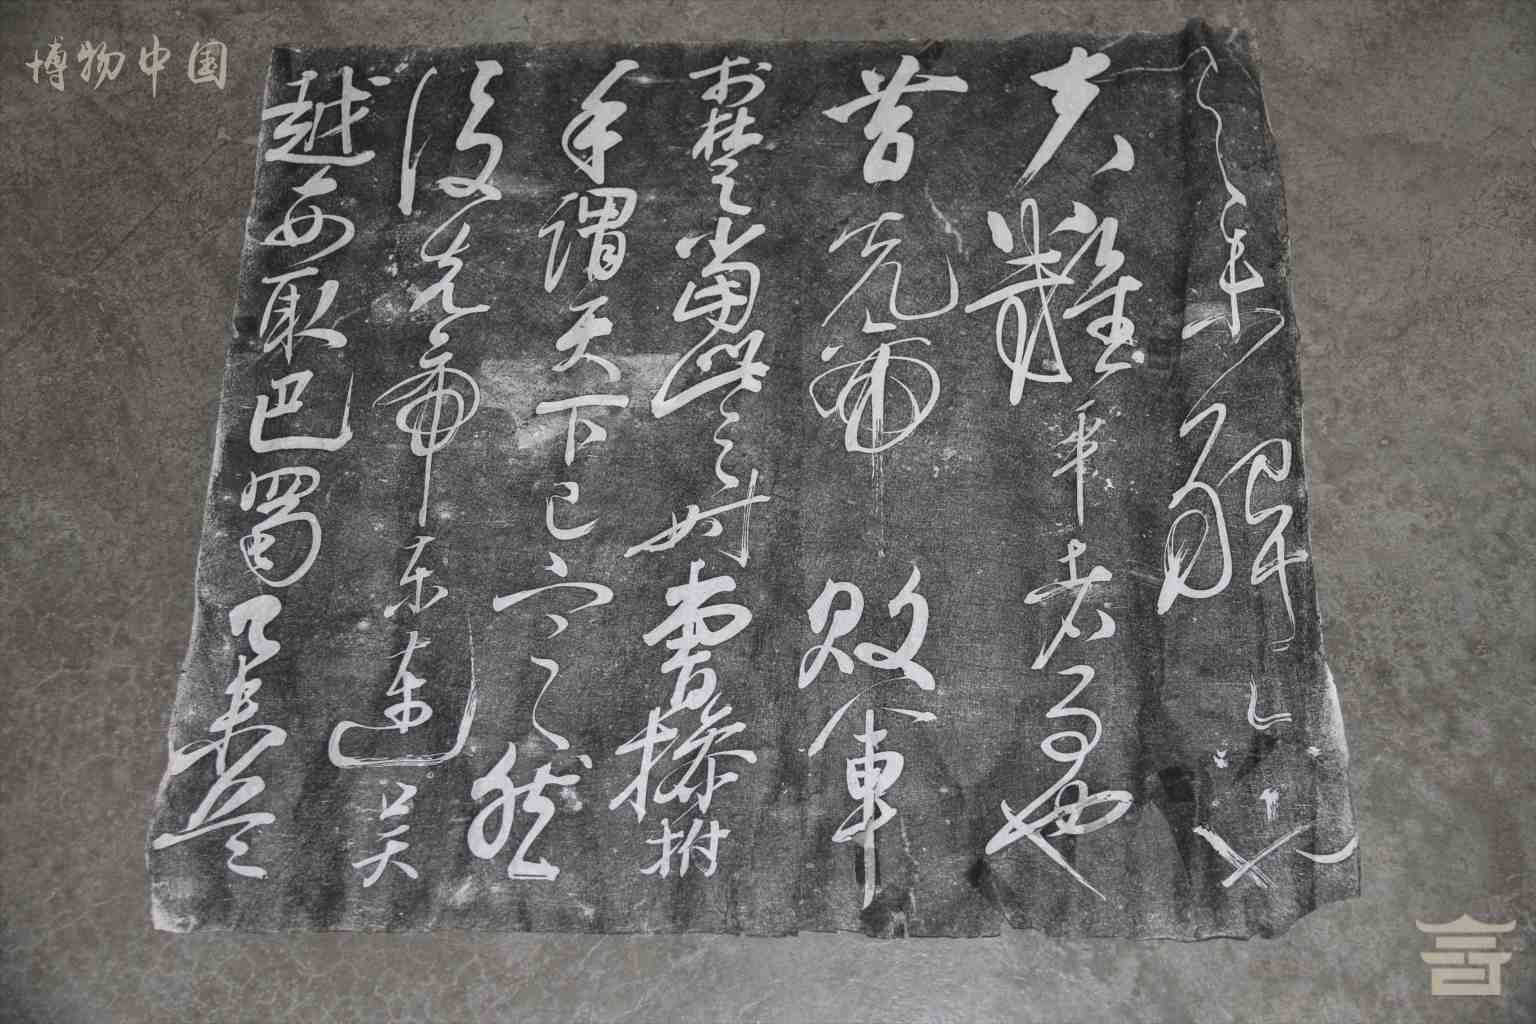 博物中国
之未解
夫難平者事也
昔先帝敗軍
於楚當此之時曹操拊
手謂天下已定然
後先帝東連吳
越西取巴蜀舉兵